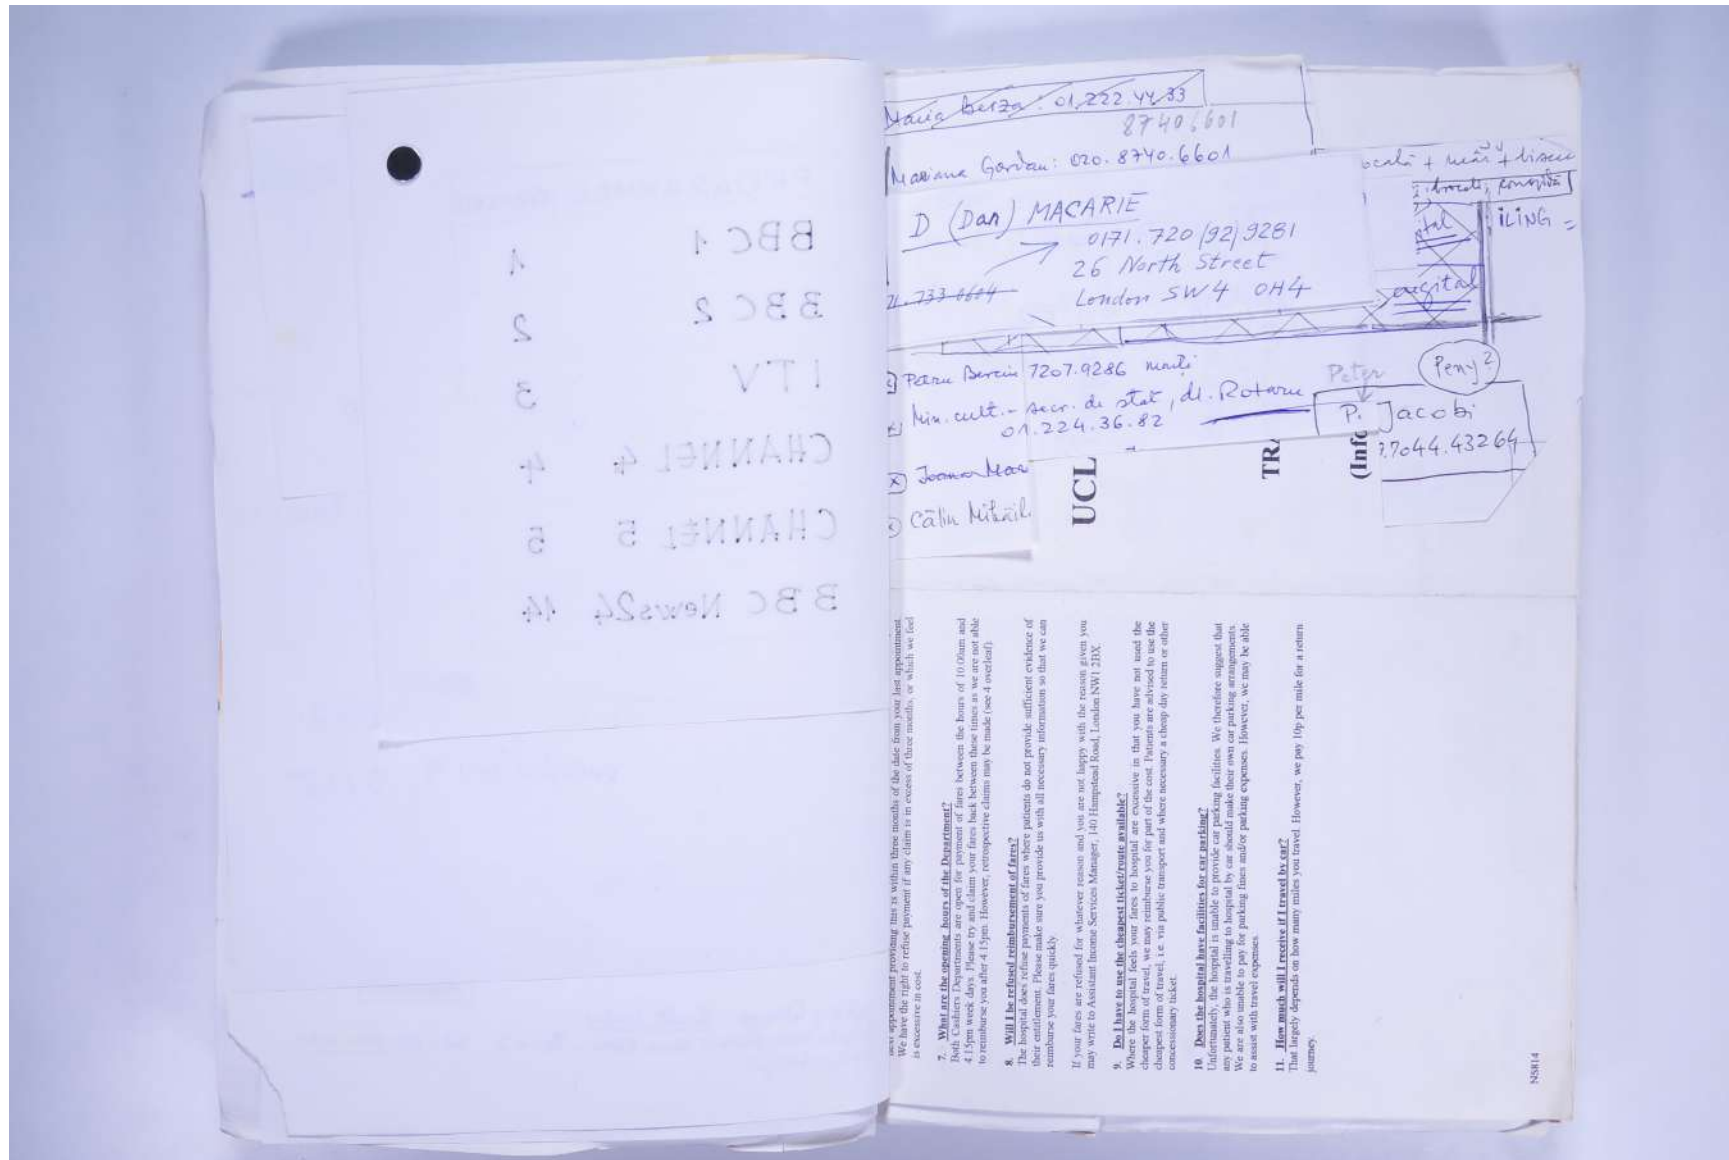 BBC 1 1
BBC 2 2
ITV 3
CHANNEL 4 4
CHANNEL 5 5
BBC News24 14
Maria Berza: 01.222.44.33
87406601
Mariana Gordan: 020.8740.6601
D (Dan) MACARIE
0171.720 (92) 9281
26 North Street
London SW4 0H4
733 0604
ILING =
Petru 7207.9286
Min. cult. - secr. de stat, dl. Rotaru
01.224.36.82
Peter
Peny?
P. Jacobi
7044.43264
Călin Mihăil
UCL
TRA
(Info
next appointment providing this is within three months of the date from your last appointment.
We have the right to refuse payment if any claim is in excess of three months, or which we feel
is excessive in cost.
7. What are the opening hours of the Department?
Both Cashiers Departments are open for payment of fares between the hours of 10.00am and
4.15pm week days. Please try and claim your fares back between these times as we are not able
to reimburse you after 4.15pm. However, retrospective claims may be made (see 4 overleaf).
8. Will I be refused reimbursement of fares?
The hospital does refuse payments of fares where patients do not provide sufficient evidence of
their entitlement. Please make sure you provide us with all necessary information so that we can
reimburse your fares quickly.
If your fares are refused for whatever reason and you are not happy with the reason given you
may write to Assistant Income Services Manager, 140 Hampstead Road, London NW1 2BX.
9. Do I have to use the cheapest ticket/route available?
Where the hospital feels your fares to hospital are excessive in that you have not used the
cheaper form of travel, we may reimburse you for part of the cost. Patients are advised to use the
cheapest form of travel, i.e. via public transport and where necessary a cheap day return or other
concessionary ticket.
10. Does the hospital have facilities for car parking?
Unfortunately, the hospital is unable to provide car parking facilities. We therefore suggest that
any patient who is travelling to hospital by car should make their own car parking arrangements.
We are also unable to pay for parking fines and/or parking expenses. However, we may be able
to assist with travel expenses.
11. How much will I receive if I travel by car?
That largely depends on how many miles you travel. However, we pay 10p per mile for a return
journey.
NS814